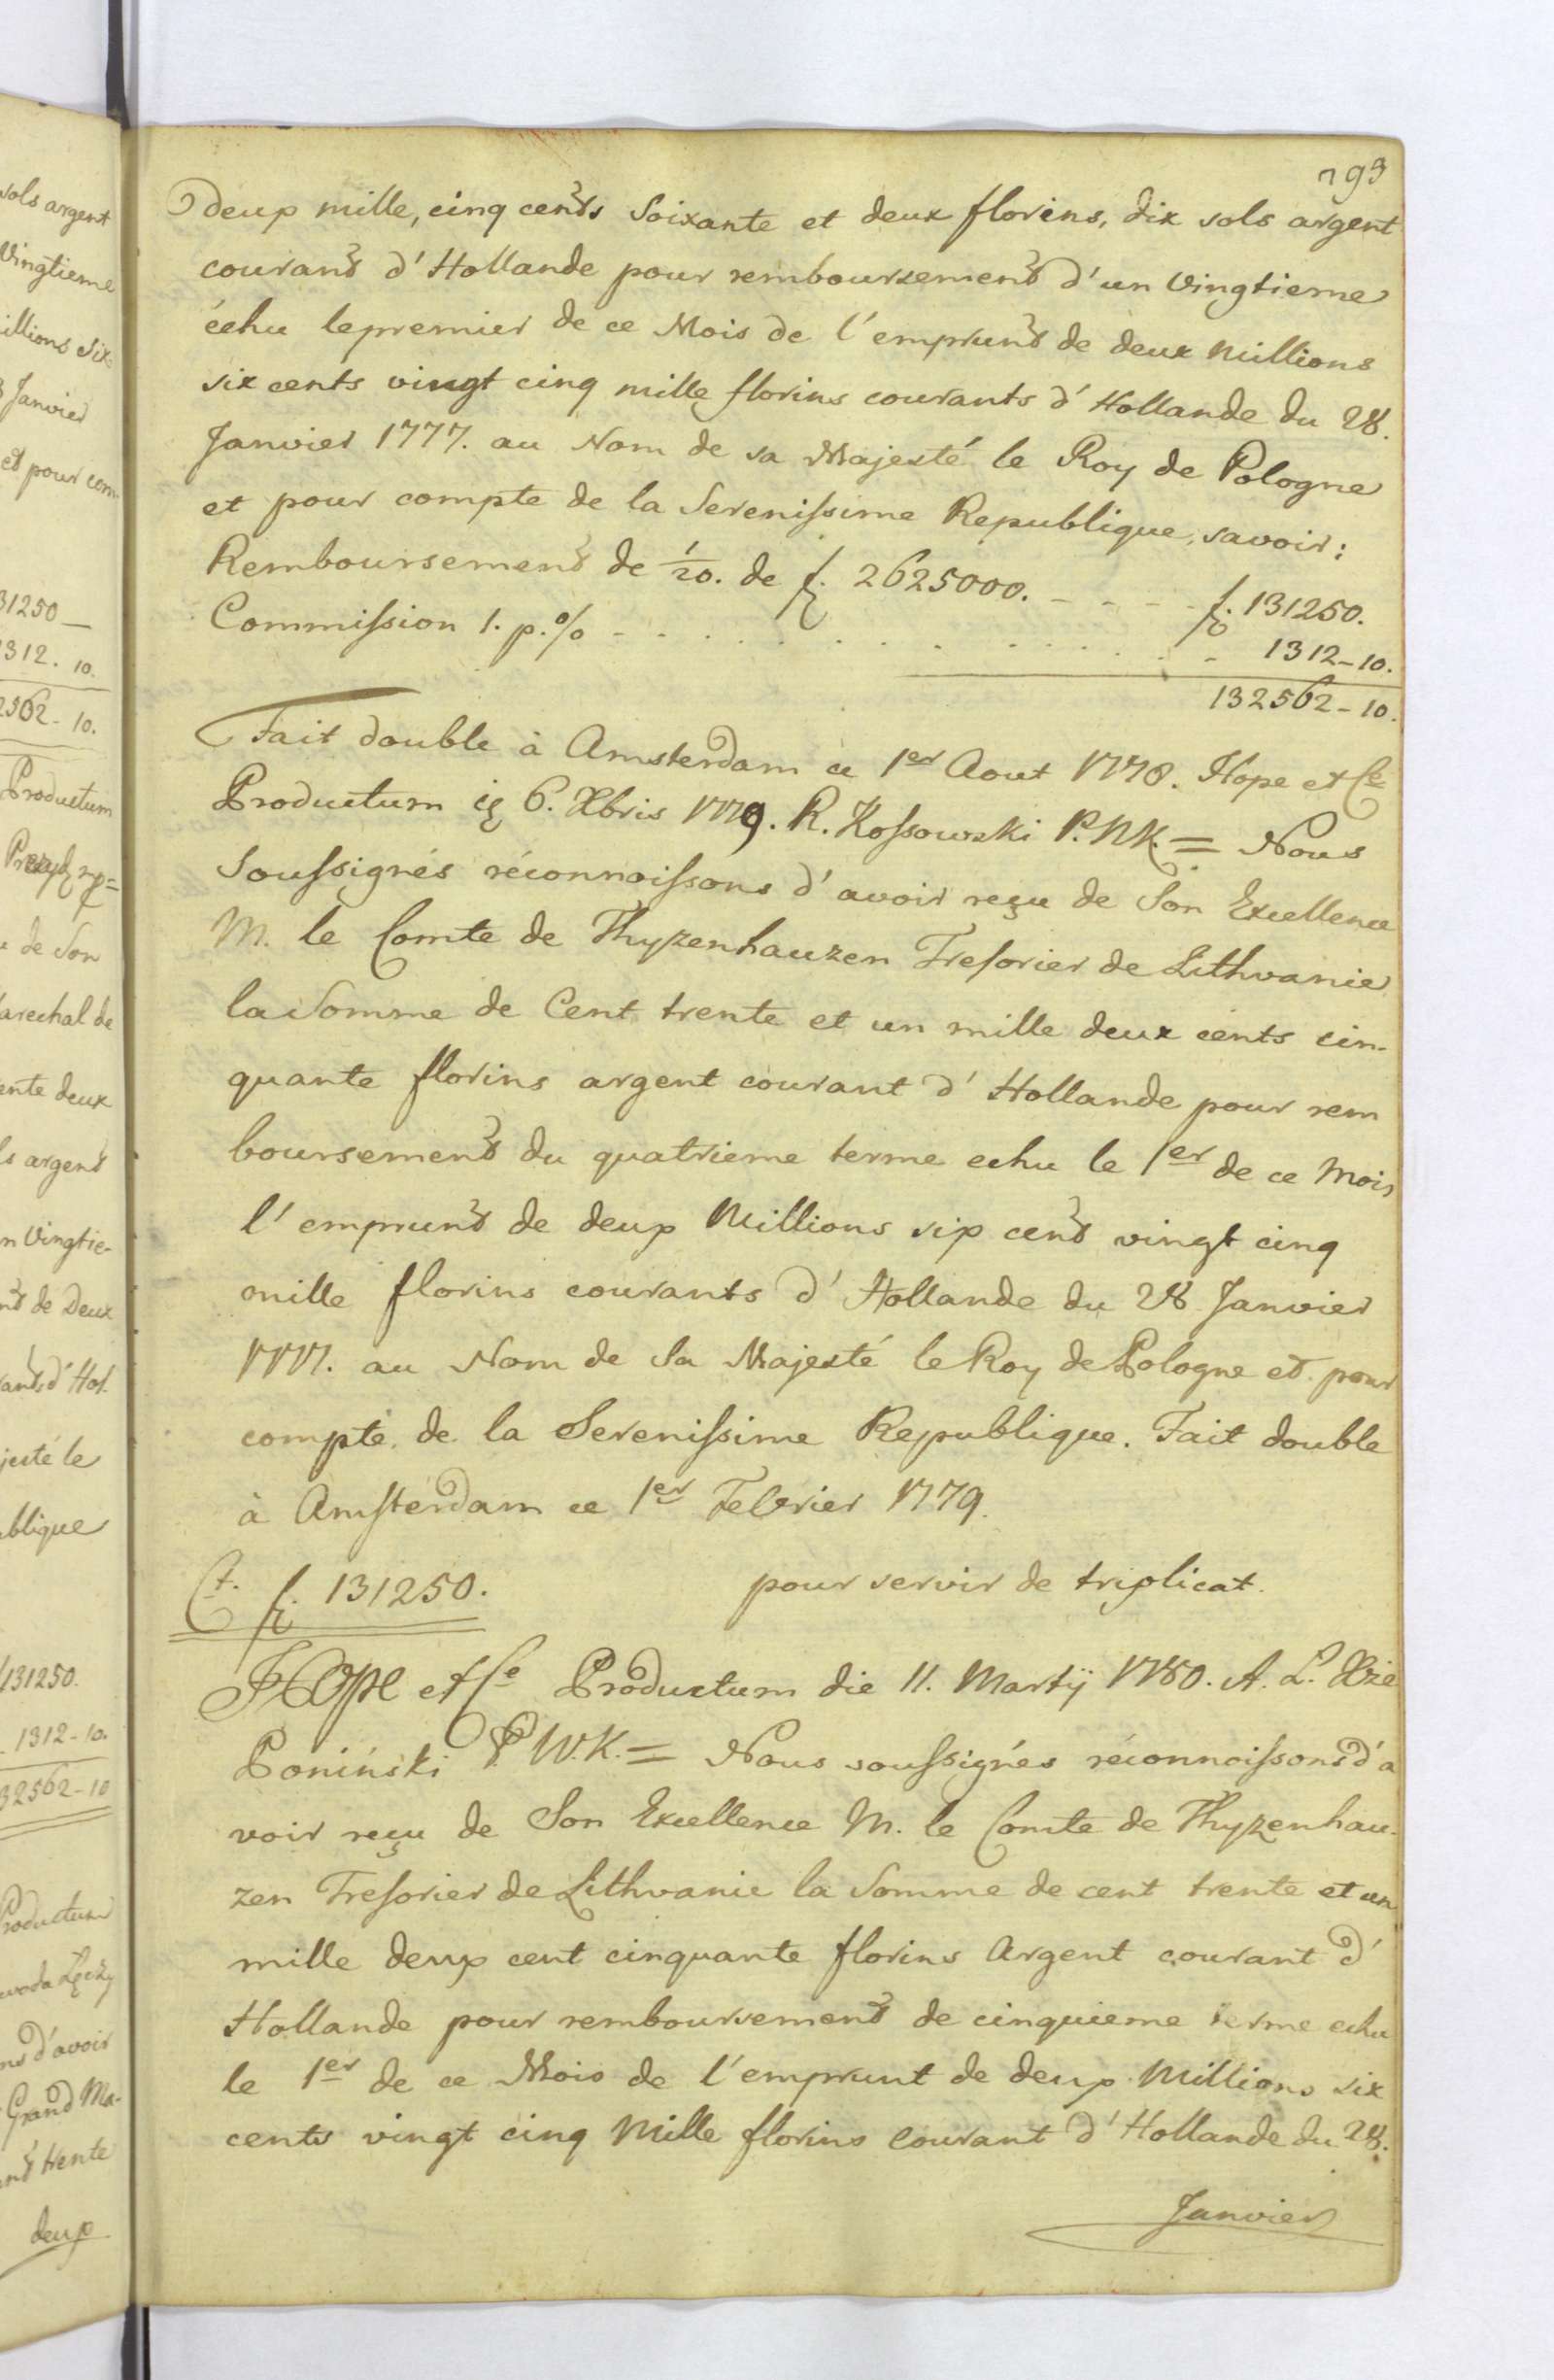 793
deux mille, cinq cents Soixante et deux florins, dix sols argent
courant d'Hollande pour remboursement d'un Vingtieme
échu le premier de ce Mois de l'emprunt de deux Millions
six cents vingt cinq mille florins courants d'Hollande du 28.
Janvier 1777. au Nom de sa Majesté le Roy de Pologne
et pour compte de la Serenissime Republique, savoir:
Remboursement de 1/20. de f. 2625000. - - - - f. 131250.
Commission 1. p.% - - - - - - - - - - - 1312-10.
132562-10.
Fait double à Amsterdam ce 1er Aout 1778. Hope et Ce
Productum 6. Xbris 1779. R. Kossowski P.N.K. = Nous
Soussignés réconnoissons d'avoir reçu de Son Excellence
M. le Comte de Thyzenhauzen Tresorier de Lithvanie
la Somme de Cent trente et un mille deux cents cin-
quante florins argent courant d'Hollande pour rem
boursement du quatrieme terme echu le 1er de ce Mois
l'emprunt de deux Millions six cent vingt cinq
mille florins courants d'Hollande du 28 Janvier
1777. au Nom de Sa Majesté le Roy de Pologne et pour
compte de la Serenissime Republique. Fait double
à Amsterdam ce 1er Febvrier 1779.
Ct. f. 131250. pour servir de triplicat.
Hope et Ce Productum die 11. Martij 1780. A. L. Xże
Poniński P.W.K. = Nous soussignés réconnoissons d'a
voir reçu de Son Excellence M. le Comte de Thyzenhau-
zen Tresorier de Lithvanie la Somme de cent trente et un
mille deux cent cinquante florins Argent courant d'
Hollande pour remboursement de cinquieme terme echu
le 1er de ce Mois de l'emprunt de deux Millions six
cents vingt cinq Mille florins courant d'Hollande du 28.
Janvier